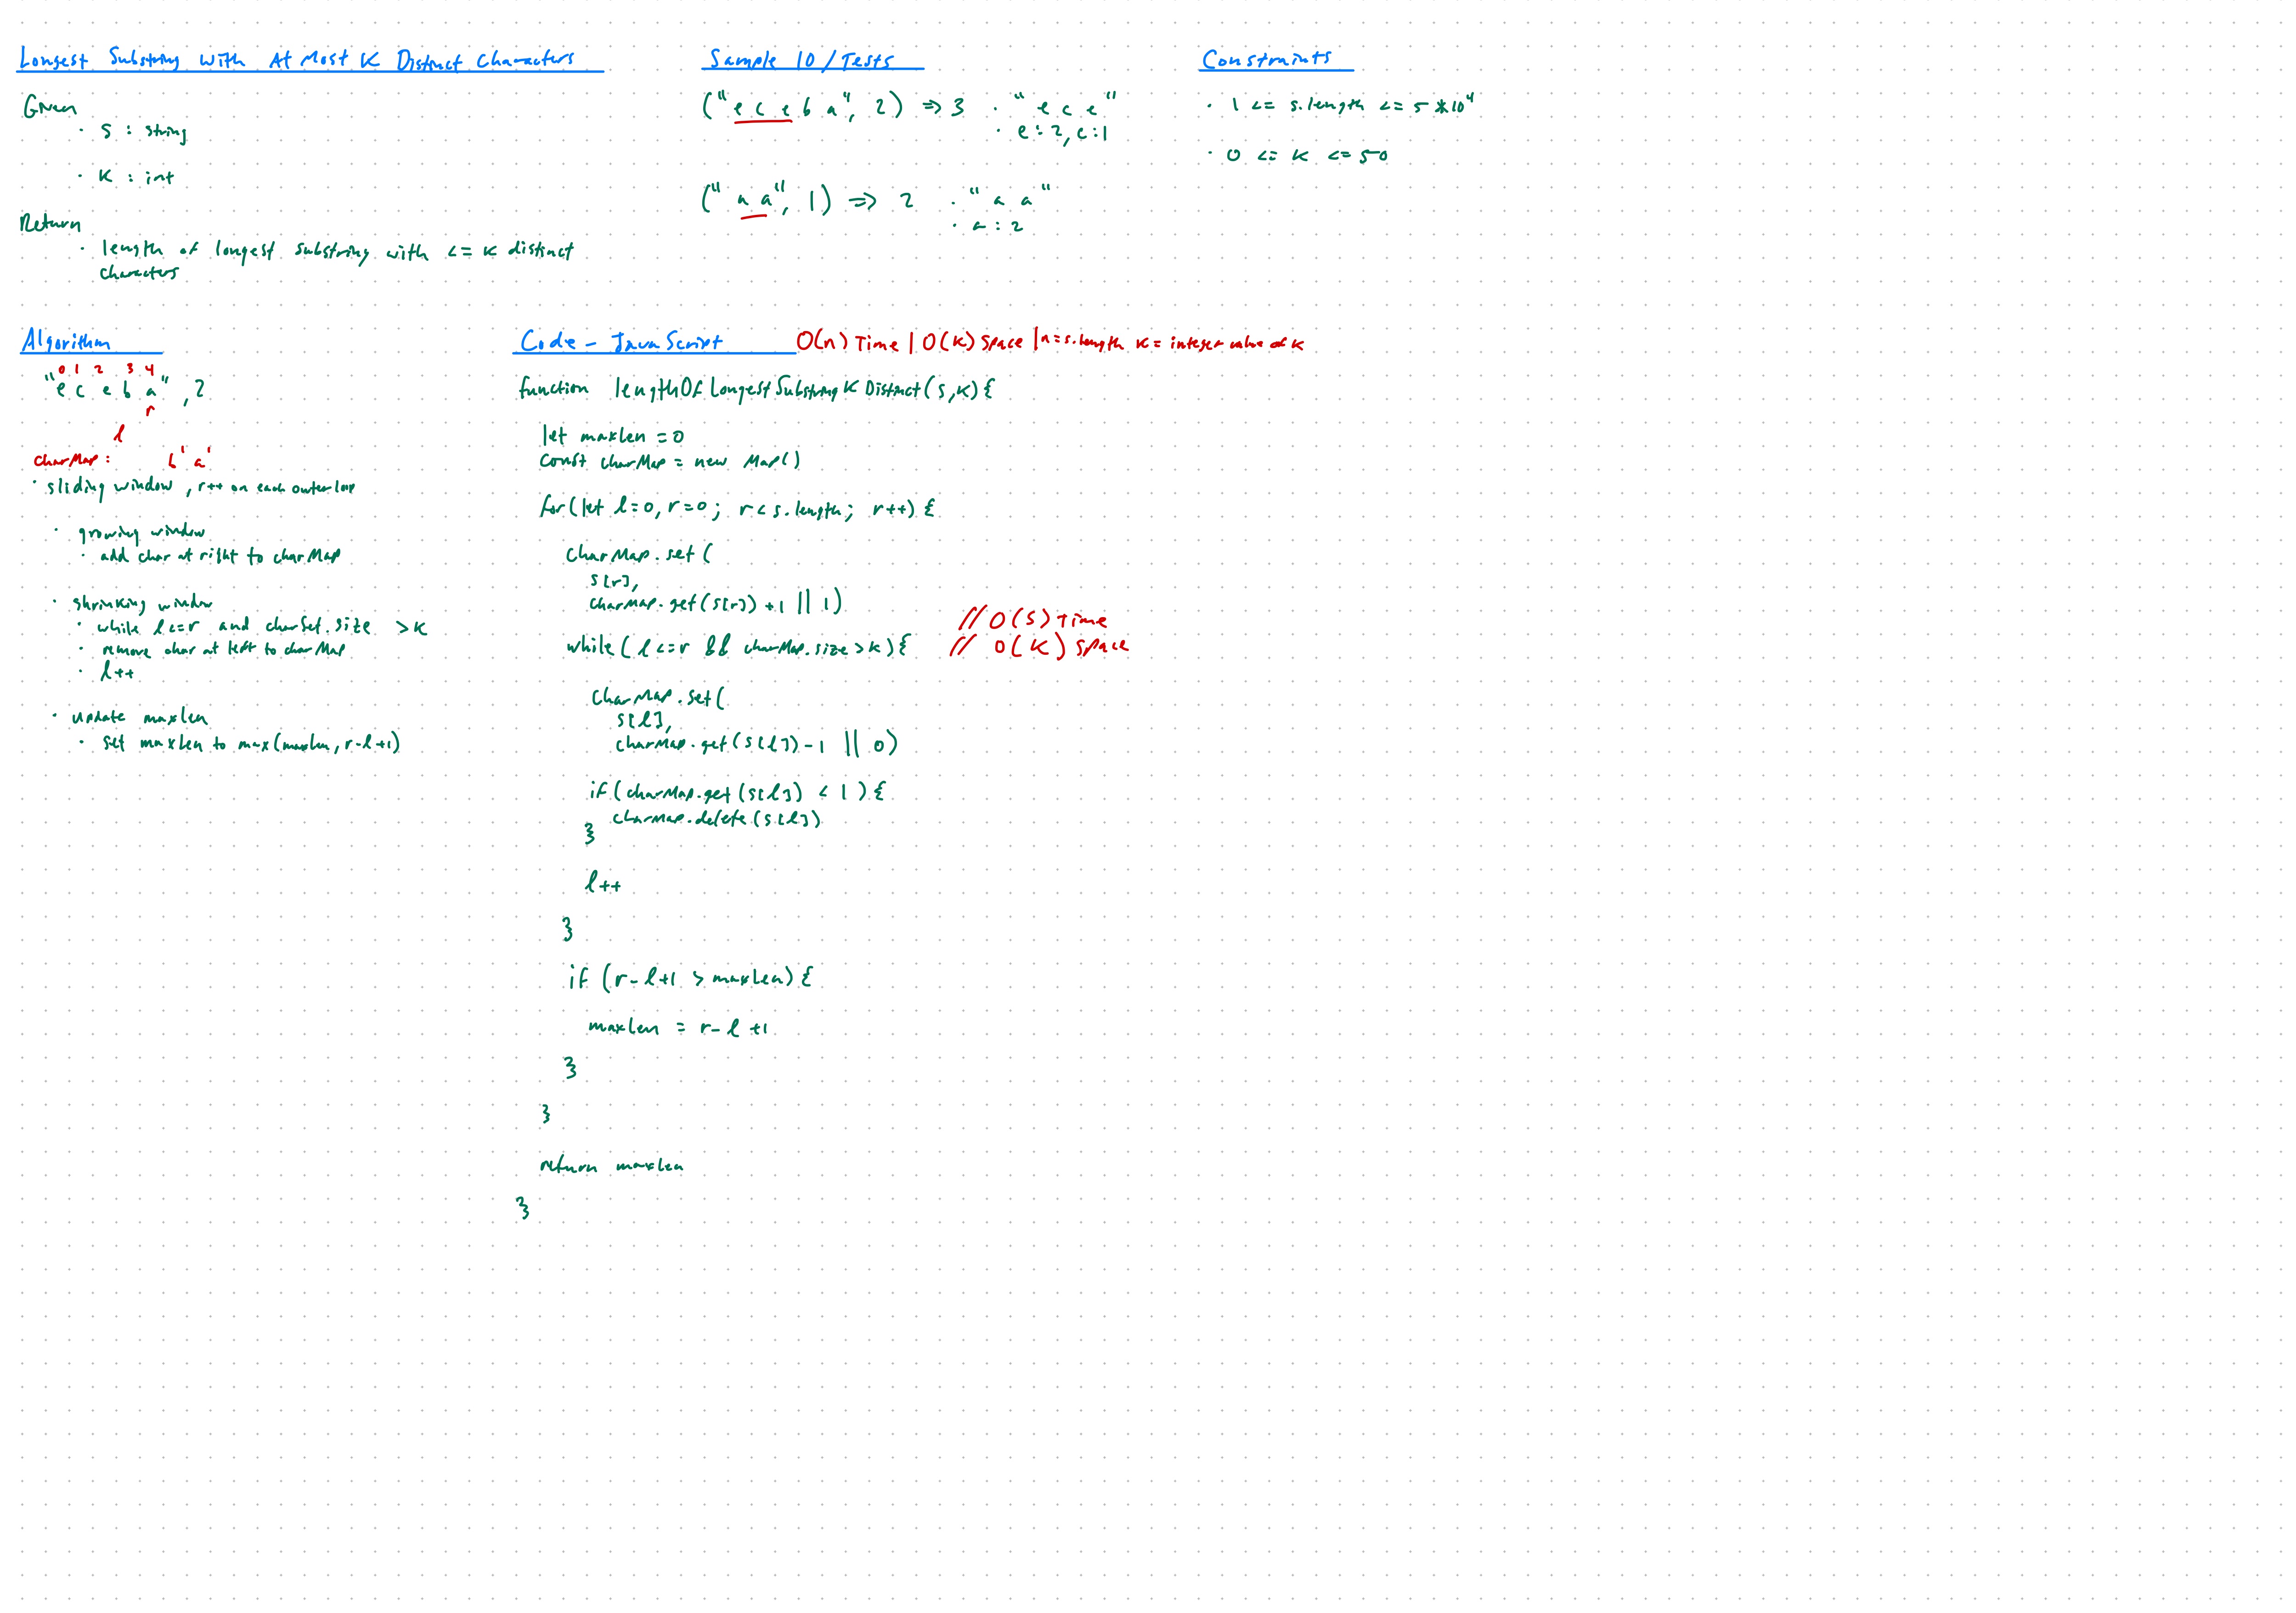 Longest Substring with At Most K Distinct Characters
Given
· S : string
· K : int
Return
· length of longest substring with <= K distinct
characters
Sample IO / Tests
("e c e b a", 2) => 3 · "e c e"
· e : 2, c : 1
("a a", 1) => 2 · "a a"
· a : 2
Constraints
· 1 <= s.length <= 5 * 10^4
· 0 <= K <= 50
Algorithm
0 1 2 3 4
"e c e b a", 2
r
l
charMap: b' a'
· sliding window, r++ on each outer loop
· growing window
· add char at right to charMap
· shrinking window
· while l <= r and charSet.size > K
· remove char at left to charMap
· l++
· update maxLen
· set maxLen to max(maxLen, r-l+1)
Code - JavaScript O(n) Time | O(K) Space | n = s.length K = integer value of K
function lengthOfLongestSubstringKDistinct(s, K) {
let maxLen = 0
const charMap = new Map()
for (let l=0, r=0; r < s.length; r++) {
charMap.set(
s[r],
charMap.get(s[r]) +1 || 1)
while (l <= r && charMap.size > K) {
// O(S) Time
// O(K) Space
charMap.set(
s[l],
charMap.get(s[l]) - 1 || 0)
if (charMap.get(s[l]) < 1) {
charMap.delete(s[l])
}
l++
}
if (r-l+1 > maxLen) {
maxLen = r-l+1
}
}
return maxLen
}